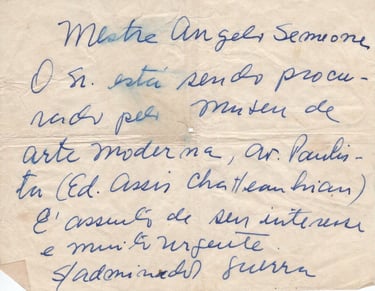 Mestre Angelo Semeone
O Sr. está sendo procu-
rado pelo museu de
arte moderna, Av. Paulis-
ta (Ed. Assis Chatteaubrian)
É assunto de seu interesse
e muito urgente.
s/admirador Guerra